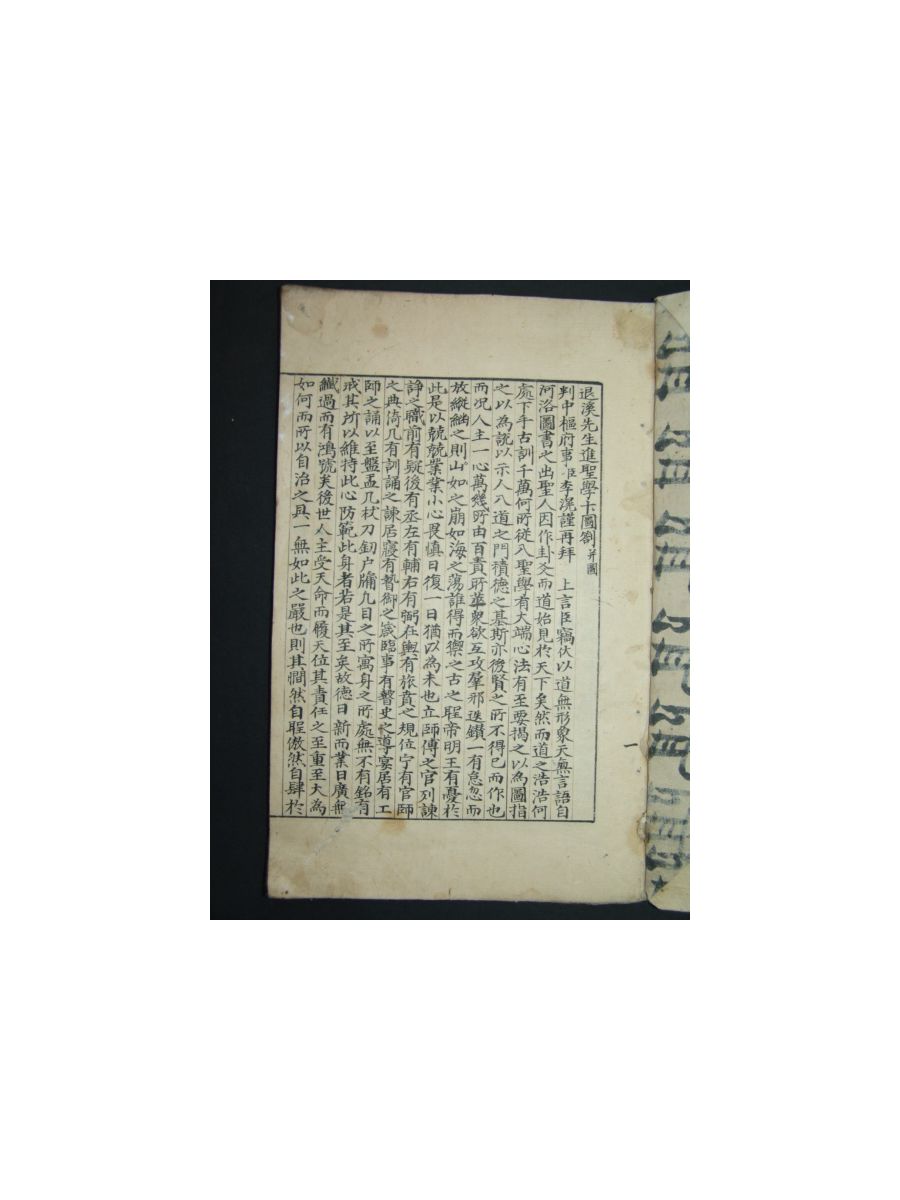 退溪先生進聖學十圖劄并圖
判中樞府事臣李滉謹再拜　上言臣竊伏以道無形象天無言語自
河洛圖書之出聖人因作卦爻而道始見於天下矣然而道之浩浩何
處下手古訓千萬何所從入聖學有大端心法有至要揭之以為圖指
之以為說以示人入道之門積德之基斯亦後賢之所不得已而作也
而况人主一心萬幾所由百責所萃衆欲互攻羣邪迭鑽一有怠忽而
放縱繼之則山如之崩如海之蕩誰得而禦之古之聖帝明王有憂於
此是以兢兢業業小心畏慎日復一日猶以為未也立師傅之官列諫
諍之職前有疑後有丞左有輔右有弼在輿有旅賁之規位宁有官師
之典倚几有訓誦之諫居寢有暬御之箴臨事有瞽史之導宴居有工
師之誦以至盤盂几杖刀釰户牖凡目之所寓身之所處無不有銘有
戒其所以維持此心防範此身者若是其至矣故德日新而業日廣無
纎過而有鴻號矣後世人主受天命而履天位其責任之至重至大為
如何而所以自治之具一無如此之嚴也則其憪然自聖傲然自肆於
一